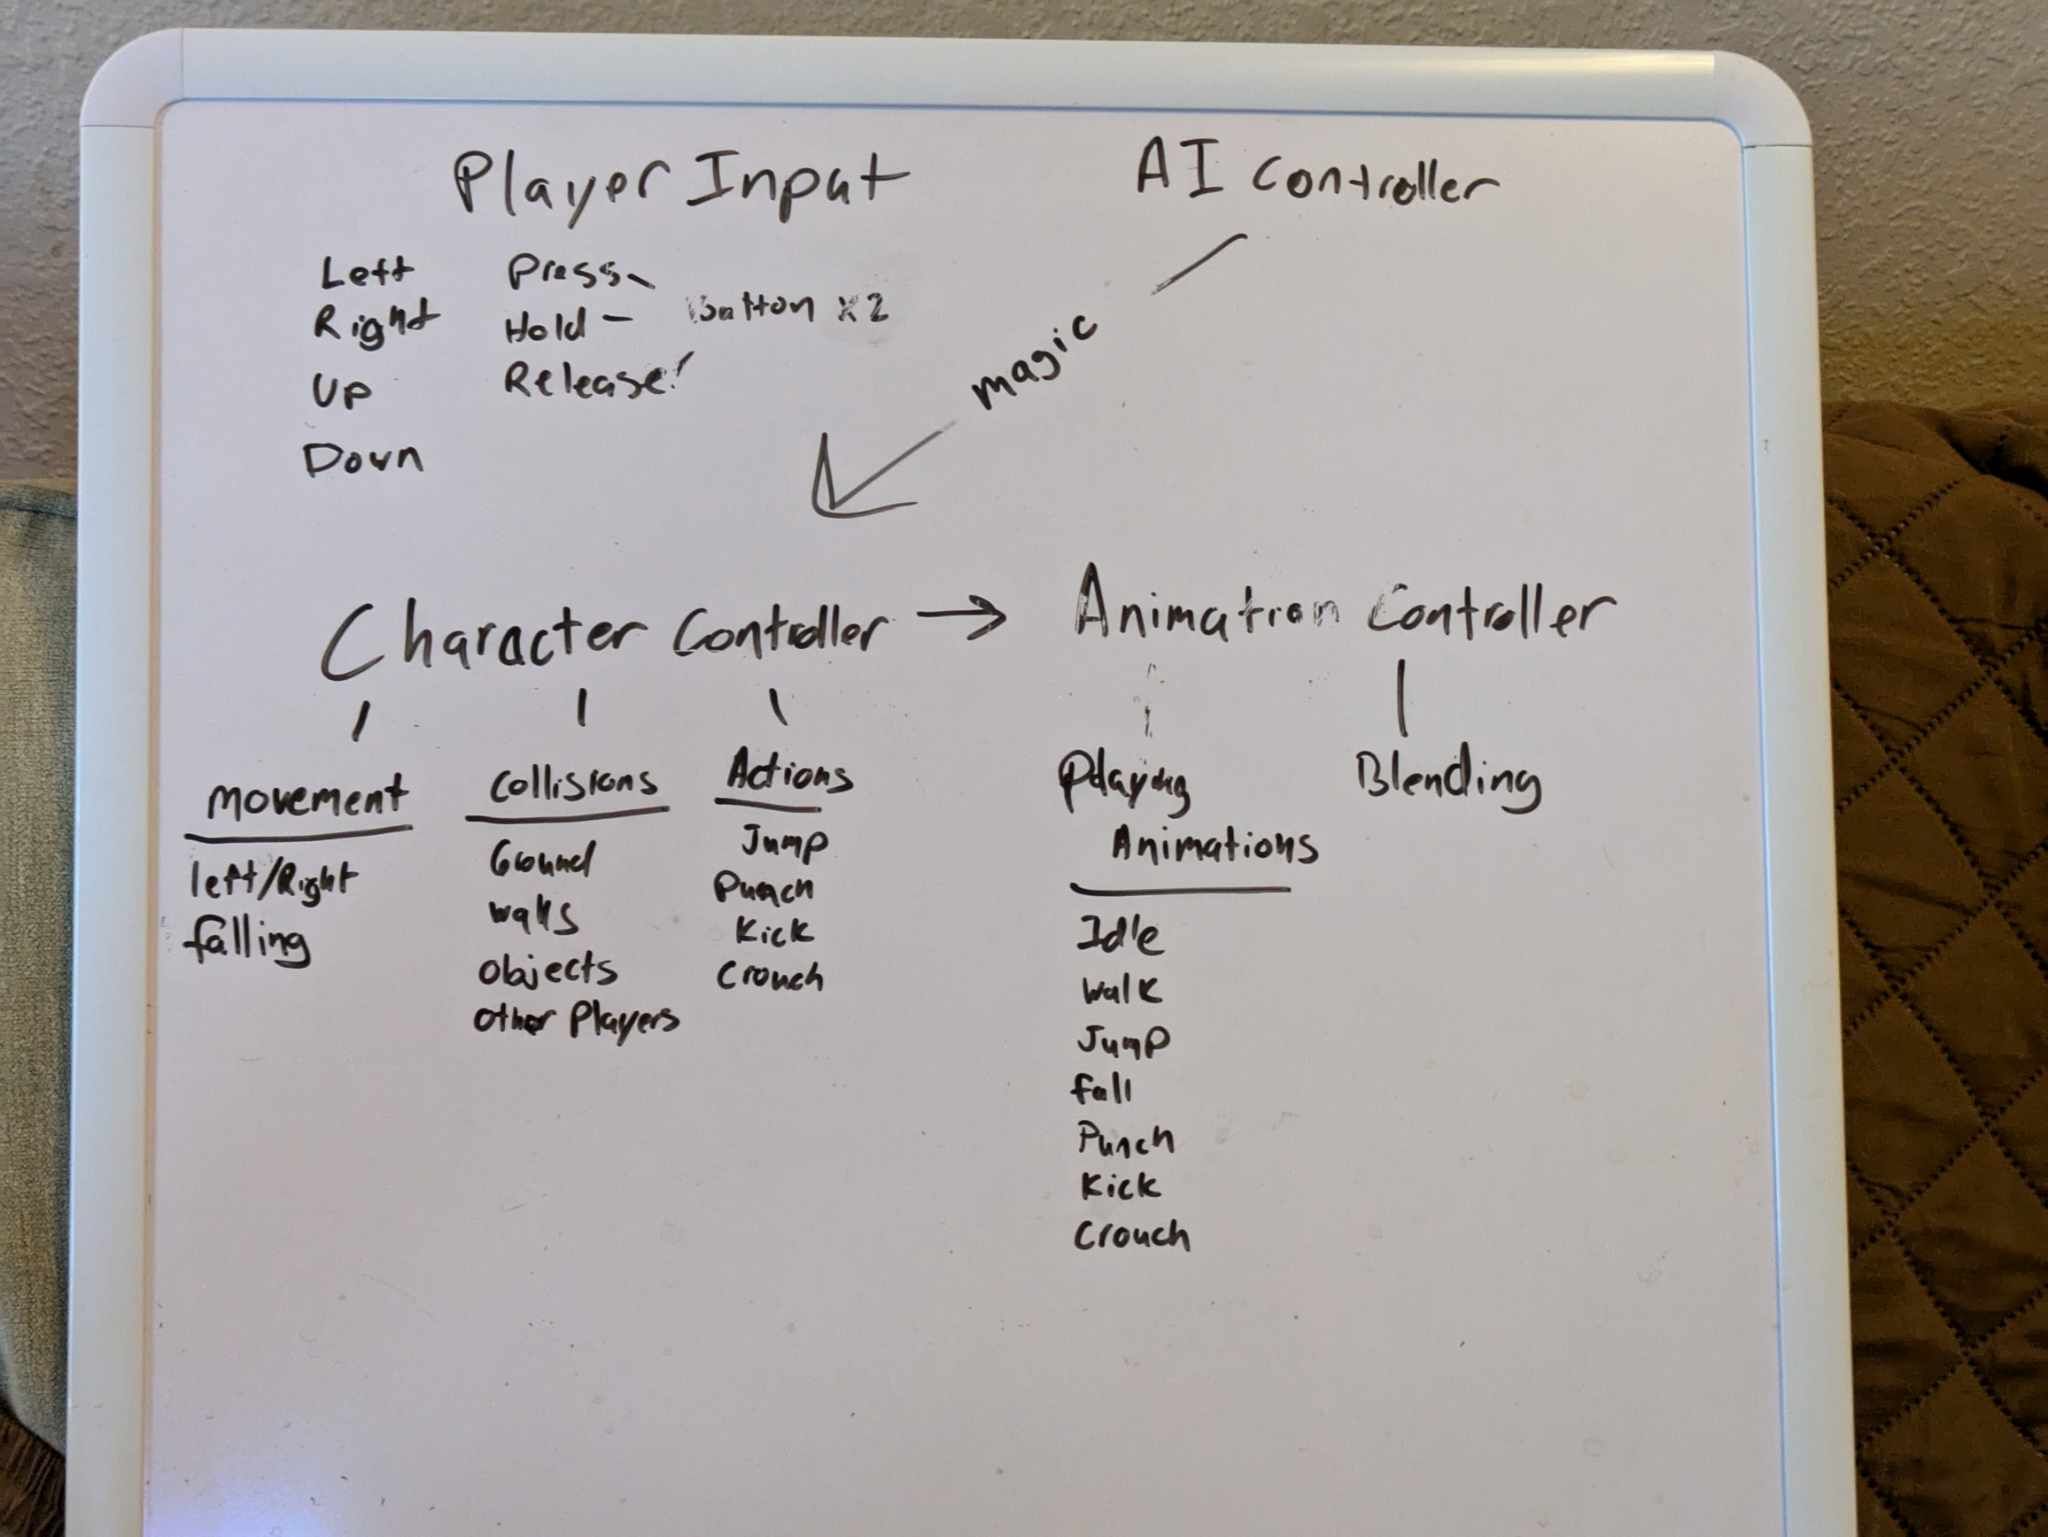 Player Input
AI Controller
Left
Right
Up
Down
Press
Hold
Release
Button x2
magic
Character Controller
Animation Controller
movement
left/Right
falling
Collisions
Ground
walls
objects
other Players
Actions
Jump
Punch
Kick
Crouch
Playing
Animations
Idle
walk
Jump
fall
Punch
Kick
Crouch
Blending